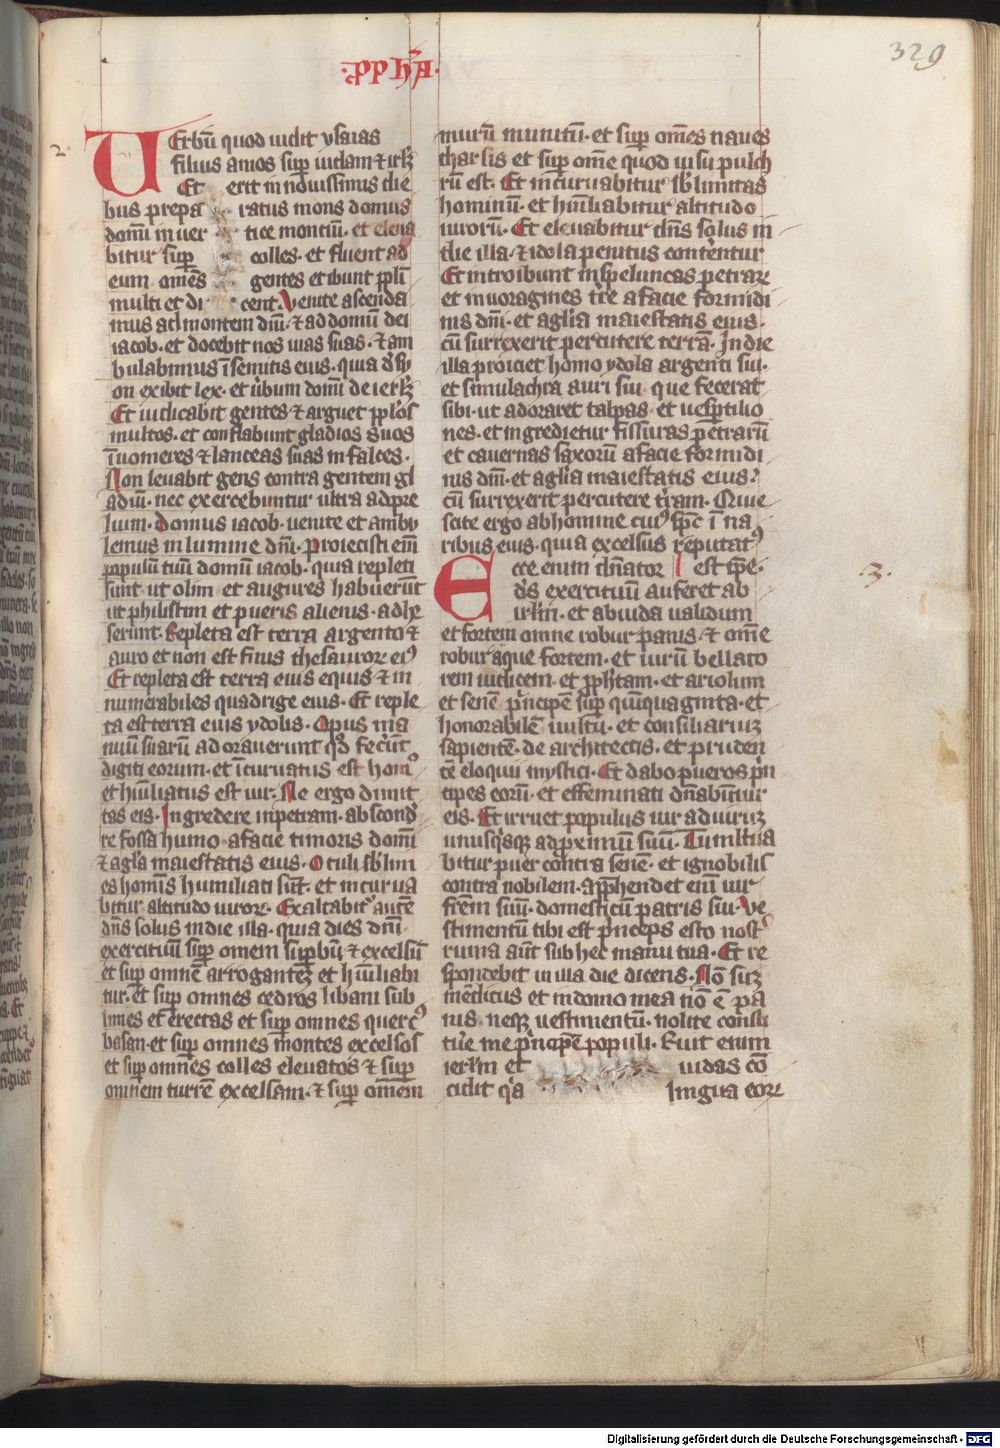 ·ꝓphā·
329
2.
UErbū quod uidit ysaias
filius amos suꝑ iudam ⁊ irlꝫ
Et erit in nouissimus die
bus prepa ratus mons domus
domī in uer tice montiū· et eleua
bitur suꝑ colles· et fluent ad
eum omēs gentes et ibunt ppli
multi et di cent· Venite ascenda
mus ad montem dnī· ⁊ ad domū dei
iacob· et docebit nos uias suas· ⁊ am
bulabimus ī semitis eius· quia de sy
on exibit lex· et ūbum domī de ierlꝫ
Et iudicabit gentes ⁊ arguet pplos
multos· et conflabunt gladios suos
ī uomeres ⁊ lanceas suas in falces·
Non leuabit gens contra gentem gl
adiū· nec exercebuntur ultra ad pre
lium· Domus iacob· uenite et ambu
lemus in lumine dnī· Proiecisti enī
populū tuū domū iacob· quia repleti
sunt· ut olim et augures habuerūt
ut philistim et pueris alienis· adhe
serunt· Repleta est terra argento ⁊
auro et non est finis thesauroꝝ eiꝰ
Et repleta est terra eius equis ⁊ in
numerabiles quadrige eius· Et reple
ta est terra eius ydolis· Opus ma
nuū suarū adorauerunt qd̄ fecūt
digiti eorum· et īcuruatus est homꝰ
et hūliatus est uir· Ne ergo dimit
tas eis· Ingredere in petram· abscond
re fossa humo· a facie timoris domī
⁊ a glīa maiestatis eius· Oculi sblim
es homīs humiliati sūt· et incurua
bitur altitudo uiroꝝ· Exaltabitᷣ autē
dns̄ solus in die illa· quia dies dnī
exercituū suꝑ omem suꝑbū ⁊ excelsū
et suꝑ omnē arrogantē et hūliabi
tur· et suꝑ omnes cedros libani sub
limes et erectas et suꝑ omnes quercꝰ
basan· et suꝑ omnes montes excelsos
et suꝑ omnēs colles eleuatos ⁊ suꝑ
omnem turrē excelsam· ⁊ suꝑ omēm
murū munitū· et suꝑ omēs naues
tharsis et suꝑ omē quod uisu pulch
rū est· Et incuruabitur sblimitas
hominū· et hūliabitur altitudo
uirorū· Et eleuabitur dns̄ solus in
die illa· ⁊ idola penitus conterentur
Et introibunt in speluncas petraꝝ
et in uoragines tr̄e a facie formidi
nis dnī· et a glīa maiestatis eius·
cū surrexerit percutere terrā· In die
illa proiciet homo ydola argenti sui·
et simulachra auri sui· que fecerat
sibi· ut adoraret talpas· et uesꝑtilio
nes· et ingredietur fissuras petrarū
et cauernas saxorū a facie formidi
nis dnī· et a glīa maiestatis eius·
cū surrexerit percutere trām· Quie
scite ergo ab homine cuiꝰ spc̄ ī na
ribus eius· quia excelsus reputatꝰ
Ecce enim dnator est ipe·
3.
ds̄ exercituum auferet ab
irlm̄· et abiuda ualidum
et fortem omne robur panis· ⁊ omē
robur aque fortem· et uirū bellato
rem iudicem· et pphtam· et ariolum
et senē pncipem suꝑ quīquaginta· et
honorabilē uultū· et consiliariuꝫ
sapientē· de architectis· et pruden
tē eloquii mystici· Et dabo pueros prin
cipes eorū· et effeminati dnabūtur
eis· Et irruet populus uir ad uiruꝫ
unusqsqꝫ ad proximū suū· Tumultua
bitur puer contra senē· et ignobilis
contra nobilem· appħendet enī uir
frēm suū· domesticū patris sui· Ve
stimentū tibi est pnceps esto nostᷣ
ruina aūt sub hec manu tua· Et re
spondebit in illa die dicens· Nō suꝫ
mēdicus et in domo mea nō ē pa
nis· neqꝫ uestimentū· nolite consti
tūe me pncipē populi· Ruit enim
ierlm̄ et iudas cō
cidit qa lingua eoꝝ
Digitalisierung gefördert durch die Deutsche Forschungsgemeinschaft - DFG